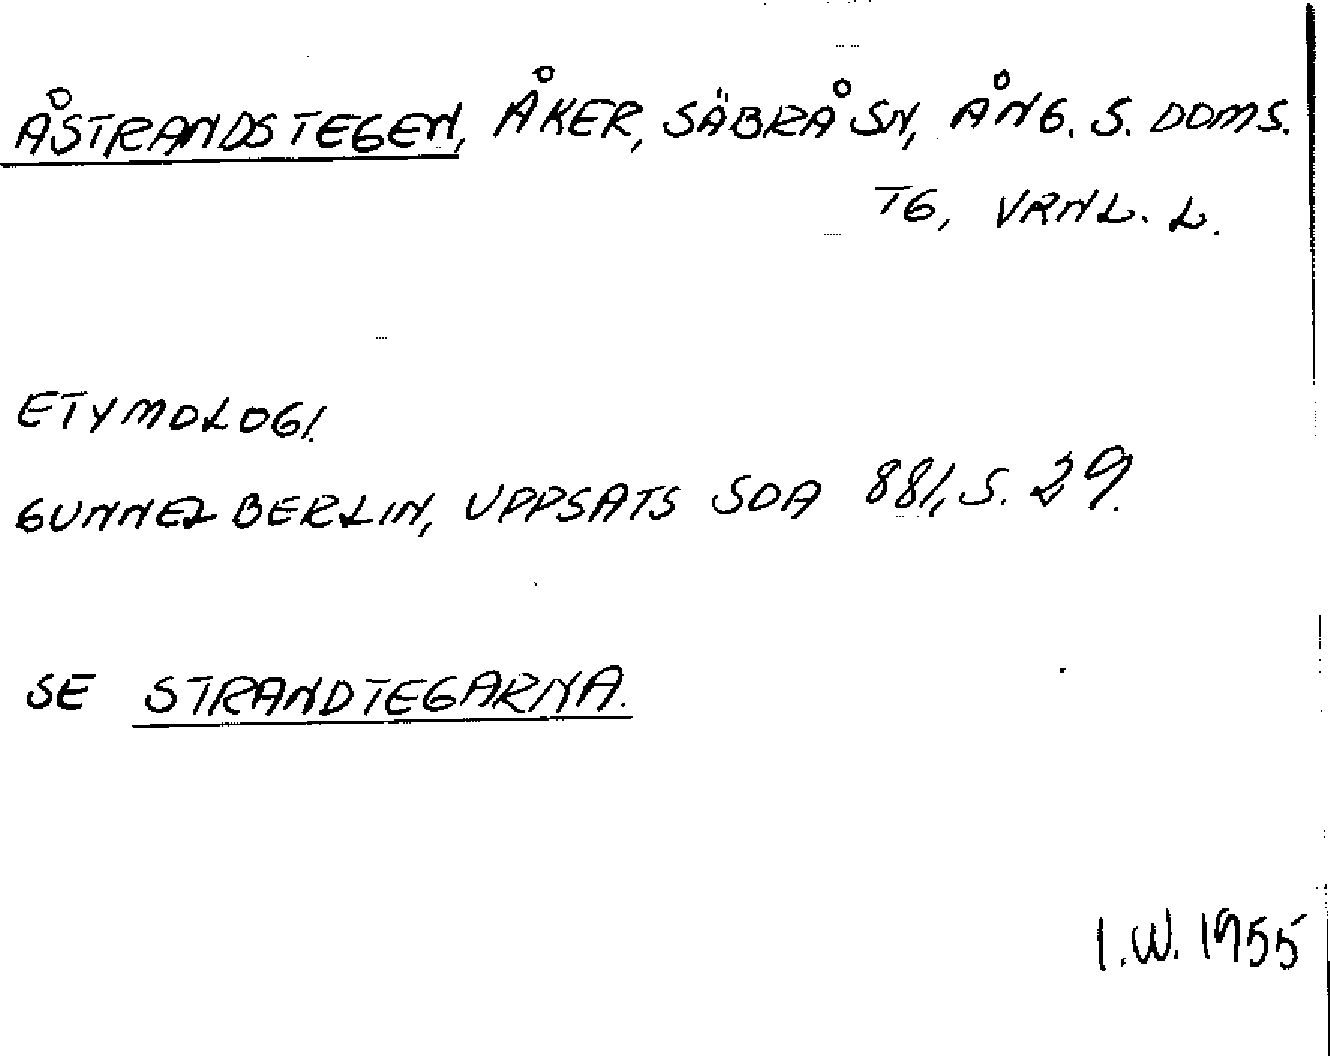 ÅSTRANDSTEGEN, ÅKER, SÄBRÅ SN, ÅNG. S. DOMS.
TG, VRNL. L.
ETYMOLOGI.
GUNNEL BERLIN, UPPSATS SOA 881, S. 29.
SE STRANDTEGARNA.
I.W. 1955